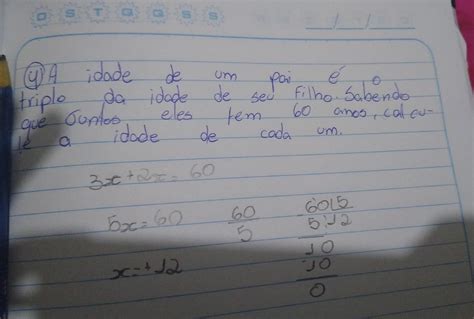 D S T Q Q S S
4) A idade de um pai é o
triplo da idade de seu filho. Sabendo
que Juntos eles tem 60 anos, calcu-
le a idade de cada um.
3x+2x=60
5x=60 60/5 60|5
5 12
10
x=+12 -10
0